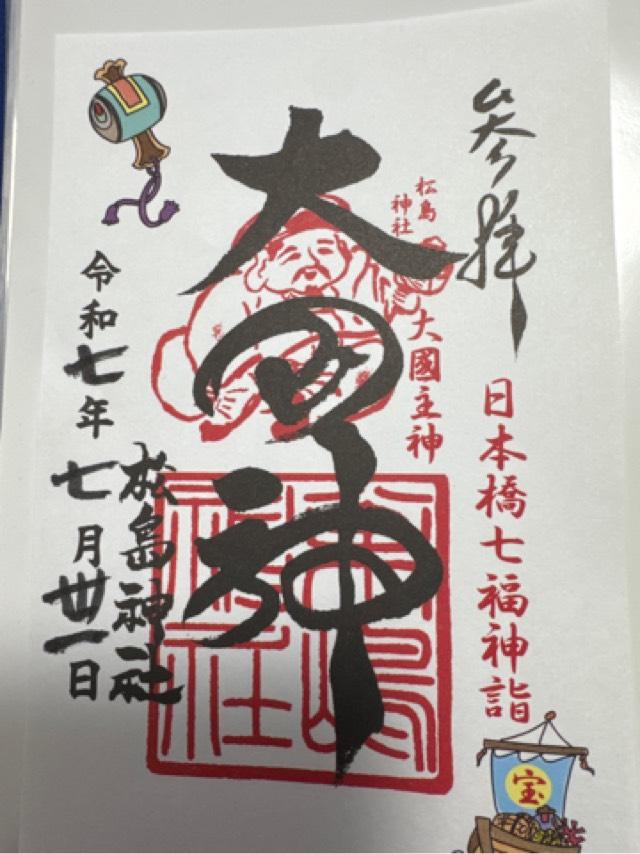 参拝
日本橋七福神詣
松島
神社
大國主神
大国神
松嶋
神社
松島神社
令和七年七月卅一日
宝